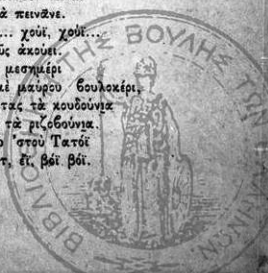 ὰ πεινᾶνε.
... χούϊ, χούϊ...
ῦς ἀκούει.
μεσημέρι
μὲ μαύρου βουλοκέρι,
τας τὰ κουδούνια
τὰ ριζοβούνια.
ο 'στοῦ Τατόϊ
τ, ἔϊ, βόϊ βόϊ.
ΒΙΒΛΙΟ ΤΗΣ ΒΟΥΛΗΣ ΤΩΝ ΗΝΩΝ